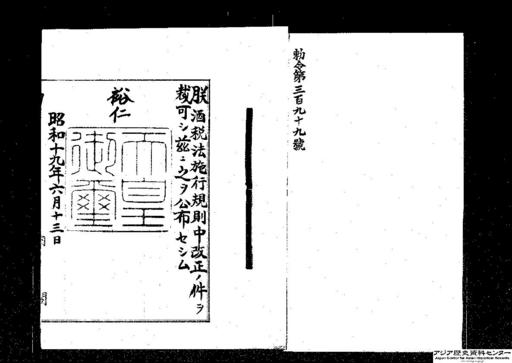 勅令第三百九十九號
朕酒税法施行規則中改正ノ件ヲ
裁可シ茲ニ之ヲ公布セシム
裕仁
天皇
御璽
昭和十九年六月十三日
内閣
アジア歴史資料センター
Japan Center for Asian Historical Records